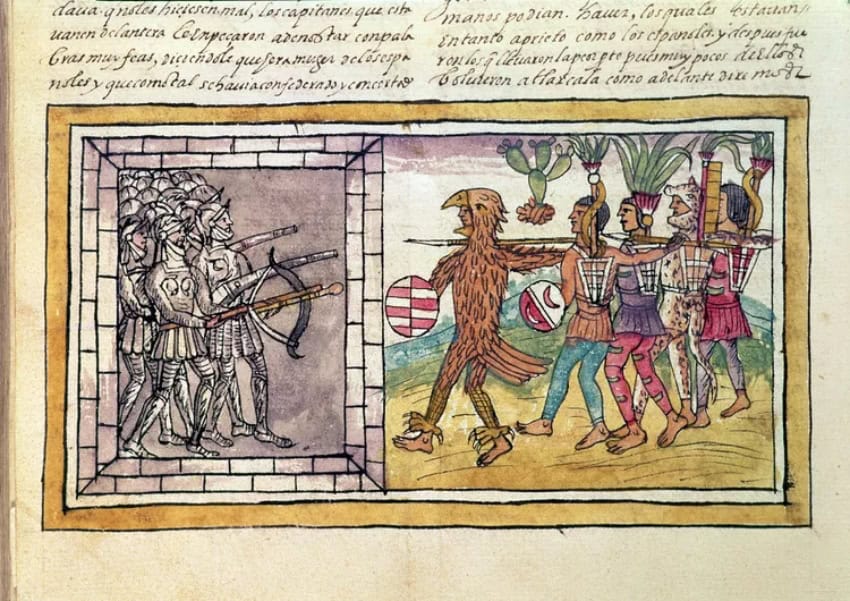 clava. q̃ no les hiciesen mal, los capitanes que esta
uan en delantera le enpeçaron a denostar con pala
bras muy feas, diciendole que fera muger de los espa
ñoles y que como tal se havia confederado y concertado
manos podian. Haver, los quales estavan
en tanto aprieto como los españoles. y despues fue
ron los q̃ lleuaron la peor pte pues muy pocos de ellos
boluieron a tlaxcala como adelante diremos